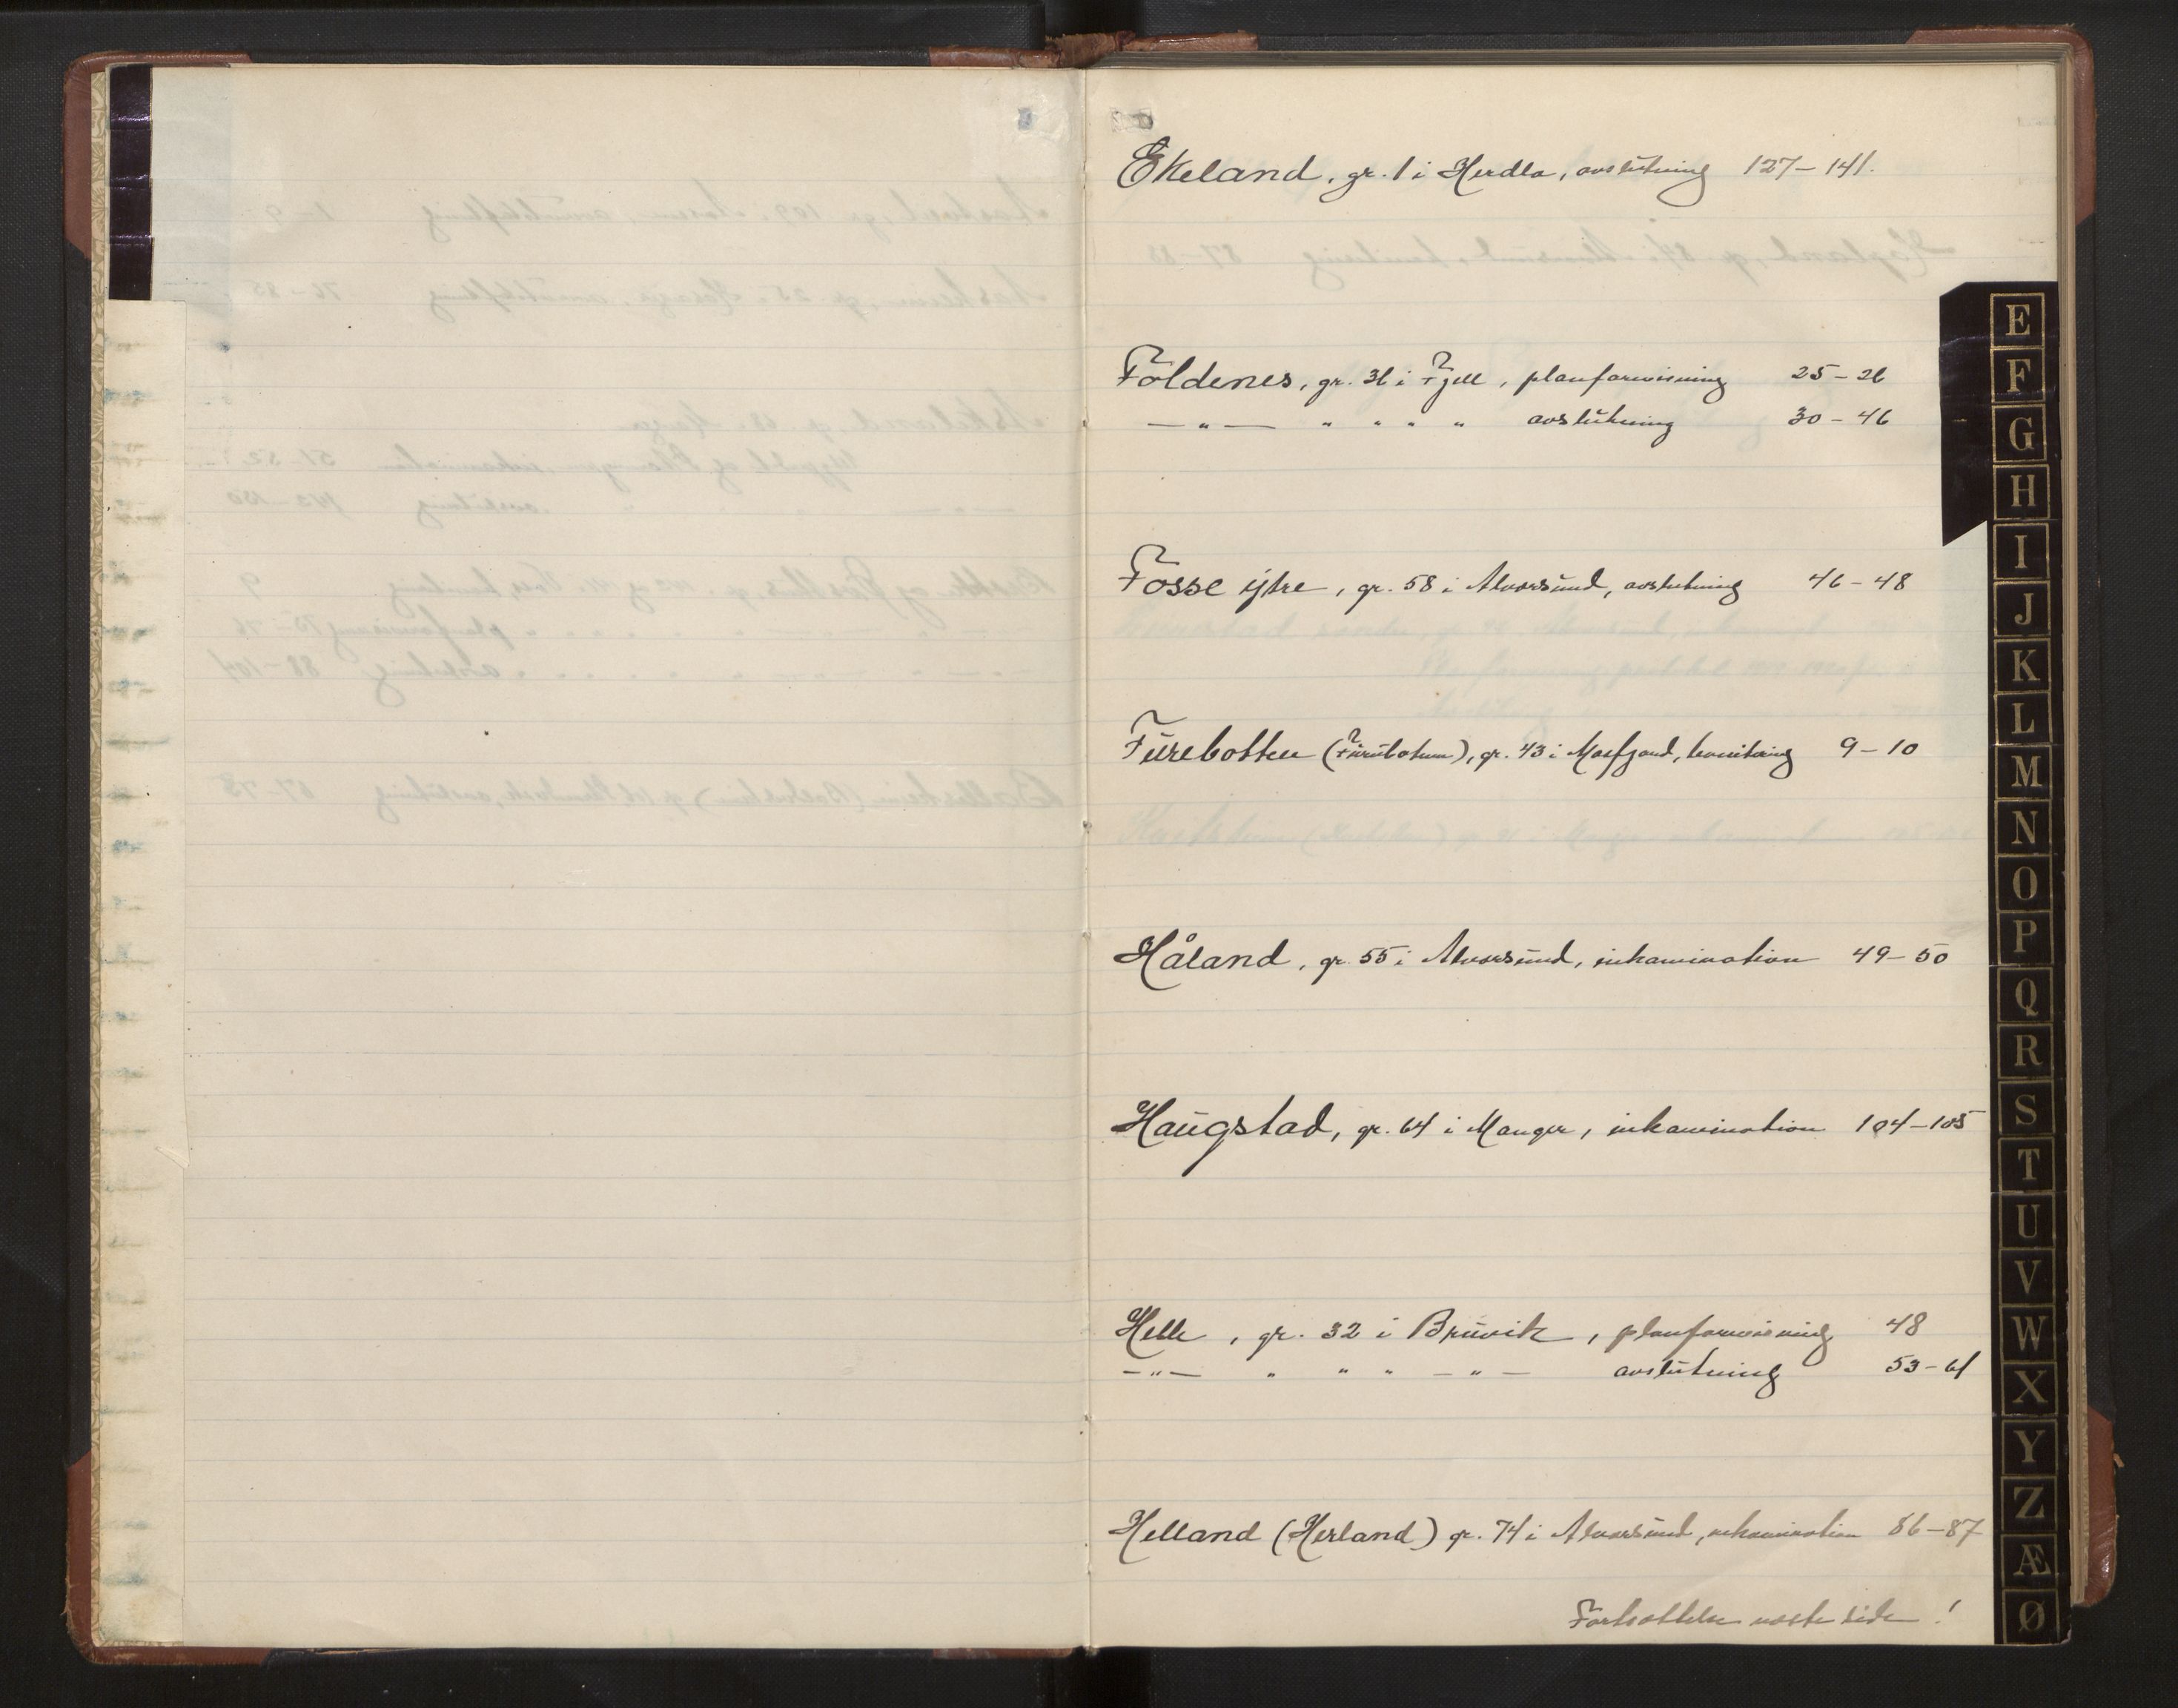 Ekeland, gr. 1 i Herdla, avslutning 127 – 141.
Foldenes, gr. 36 i Fjell, planforevisning 25 – 26
— " — " " " " avslutning 30 – 46
Fosse ytre, gr. 58 i Alversund, avslutning 46 – 48
Furebotten (Furubotnen), gr. 43 i Masfjord, bonitering 9 – 10
Håland, gr. 55 i Alversund, inkamination 49 – 50
Haugstad, gr. 64 i Manger, inkamination 104 – 105
Helle, gr. 32 i Bruvik, planforevisning 48
— " — " " " — " — avslutning 53 – 61
Helland (Herland) gr. 74 i Alversund, inkamination 86 – 87
Fortsettelse neste side!
E
F
G
H
I
J
K
L
M
N
O
P
Q
R
S
T
U
V
W
X
Y
Z
Æ
Ø